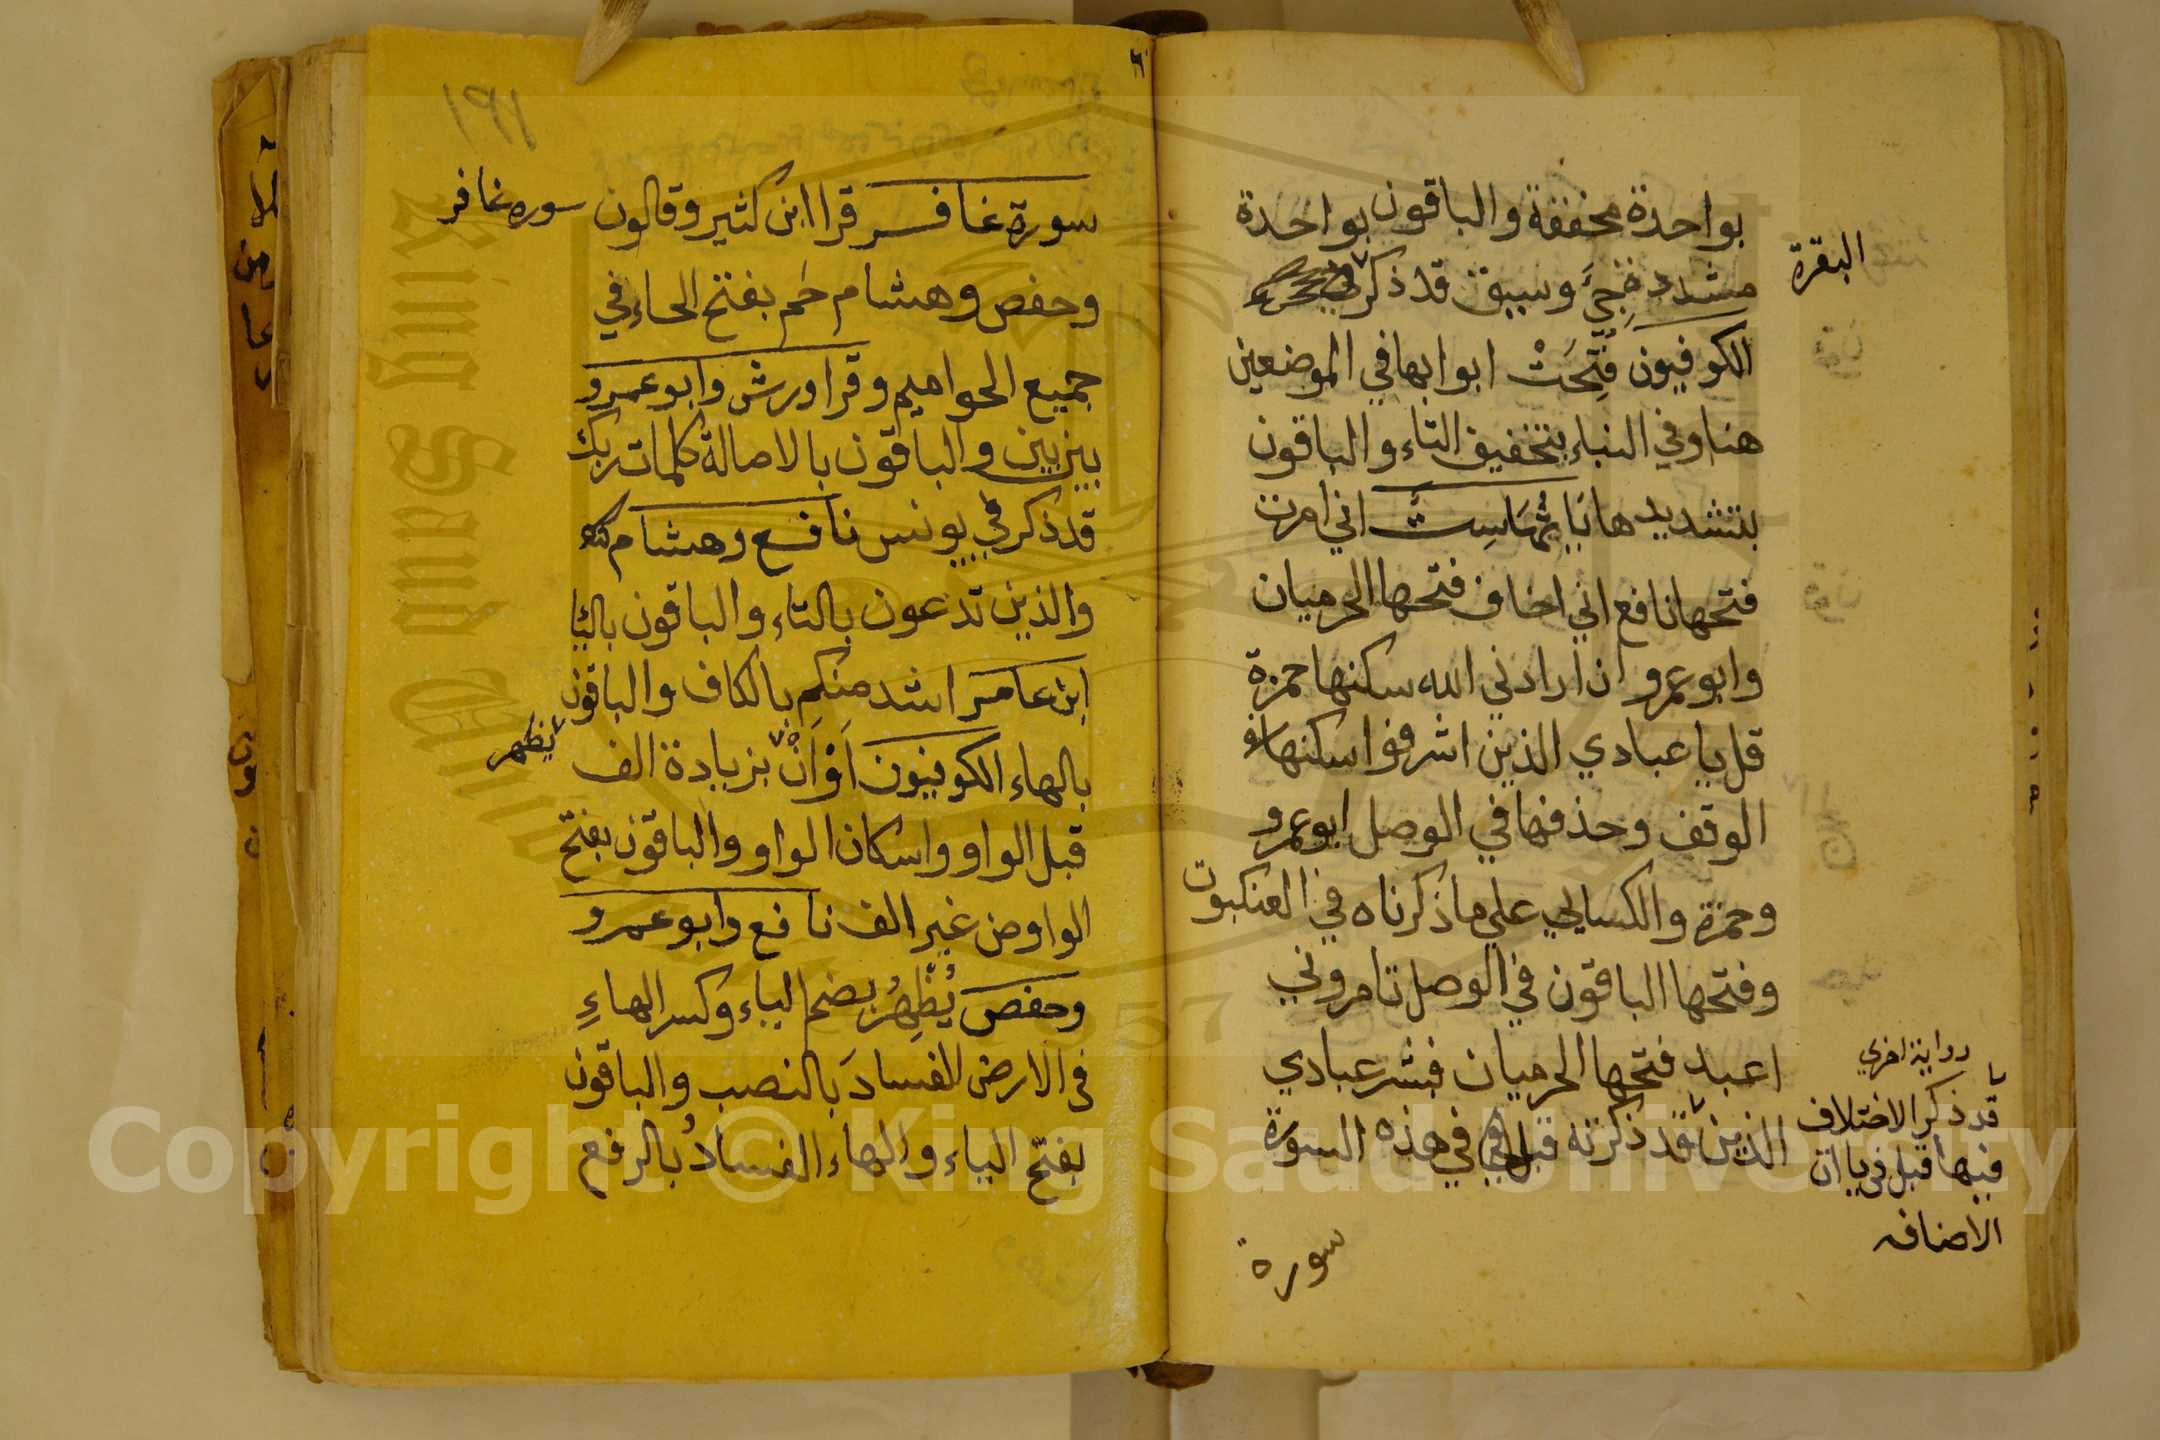 بواحدة مخففة والباقون بواحدة
مشددة جيَ وسيق قد ذكر في
البقرة
الكوفيون فُتِحَتْ ابوابها في الموضعين
هنا وفي النباء بتخفيف التاء والباقون
بتشديدها ياءاتها سِتٌّ اني امرت
فتحها نافع اني اخاف فتحها الحرميان
وابو عمرو ان ارادني الله سكنها حمزة
قل يا عبادي الذين اسرفوا اسكنها في
الوقف وحذفها في الوصل ابو عمرو
وحمزة والكسايي على ما ذكرناه في العنكبوت
وفتحها الباقون في الوصل تامروني
اعبد فتحها الحرميان فبشر عبادي
الذين قد ذكرته قبل في هذه السورة
رواية اخري
قد ذكر الاختلاف
فيها قبل في ياات
الاضافه
سورة
١٩١
سورة غافر قرا ابن كثير وقالون
سوره غافر
وحفص وهشام حم بفتح الحاء في
جميع الحواميم وقرا ورش وابو عمرو
بين بين والباقون بالامالة كلمات ربك
قد ذكر في يونس نافع وهشام
والذين تدعون بالتاء والباقون باليا
ابن عامر اشد منكم بالكاف والباقون
بالهاء الكوفيون اَوْ اَنْ بزيادة الف
يظهر
قبل الواو واسكان الواو والباقون بفتح
الواو من غير الف نافع وابو عمرو
وحفص يُظْهِرُ بضم الياء وكسر الهاءِ
في الارض الفسادَ بالنصب والباقون
بفتح الياء والهاء الفسادُ بالرفع
King Saud University
1957
Copyright © King Saud University